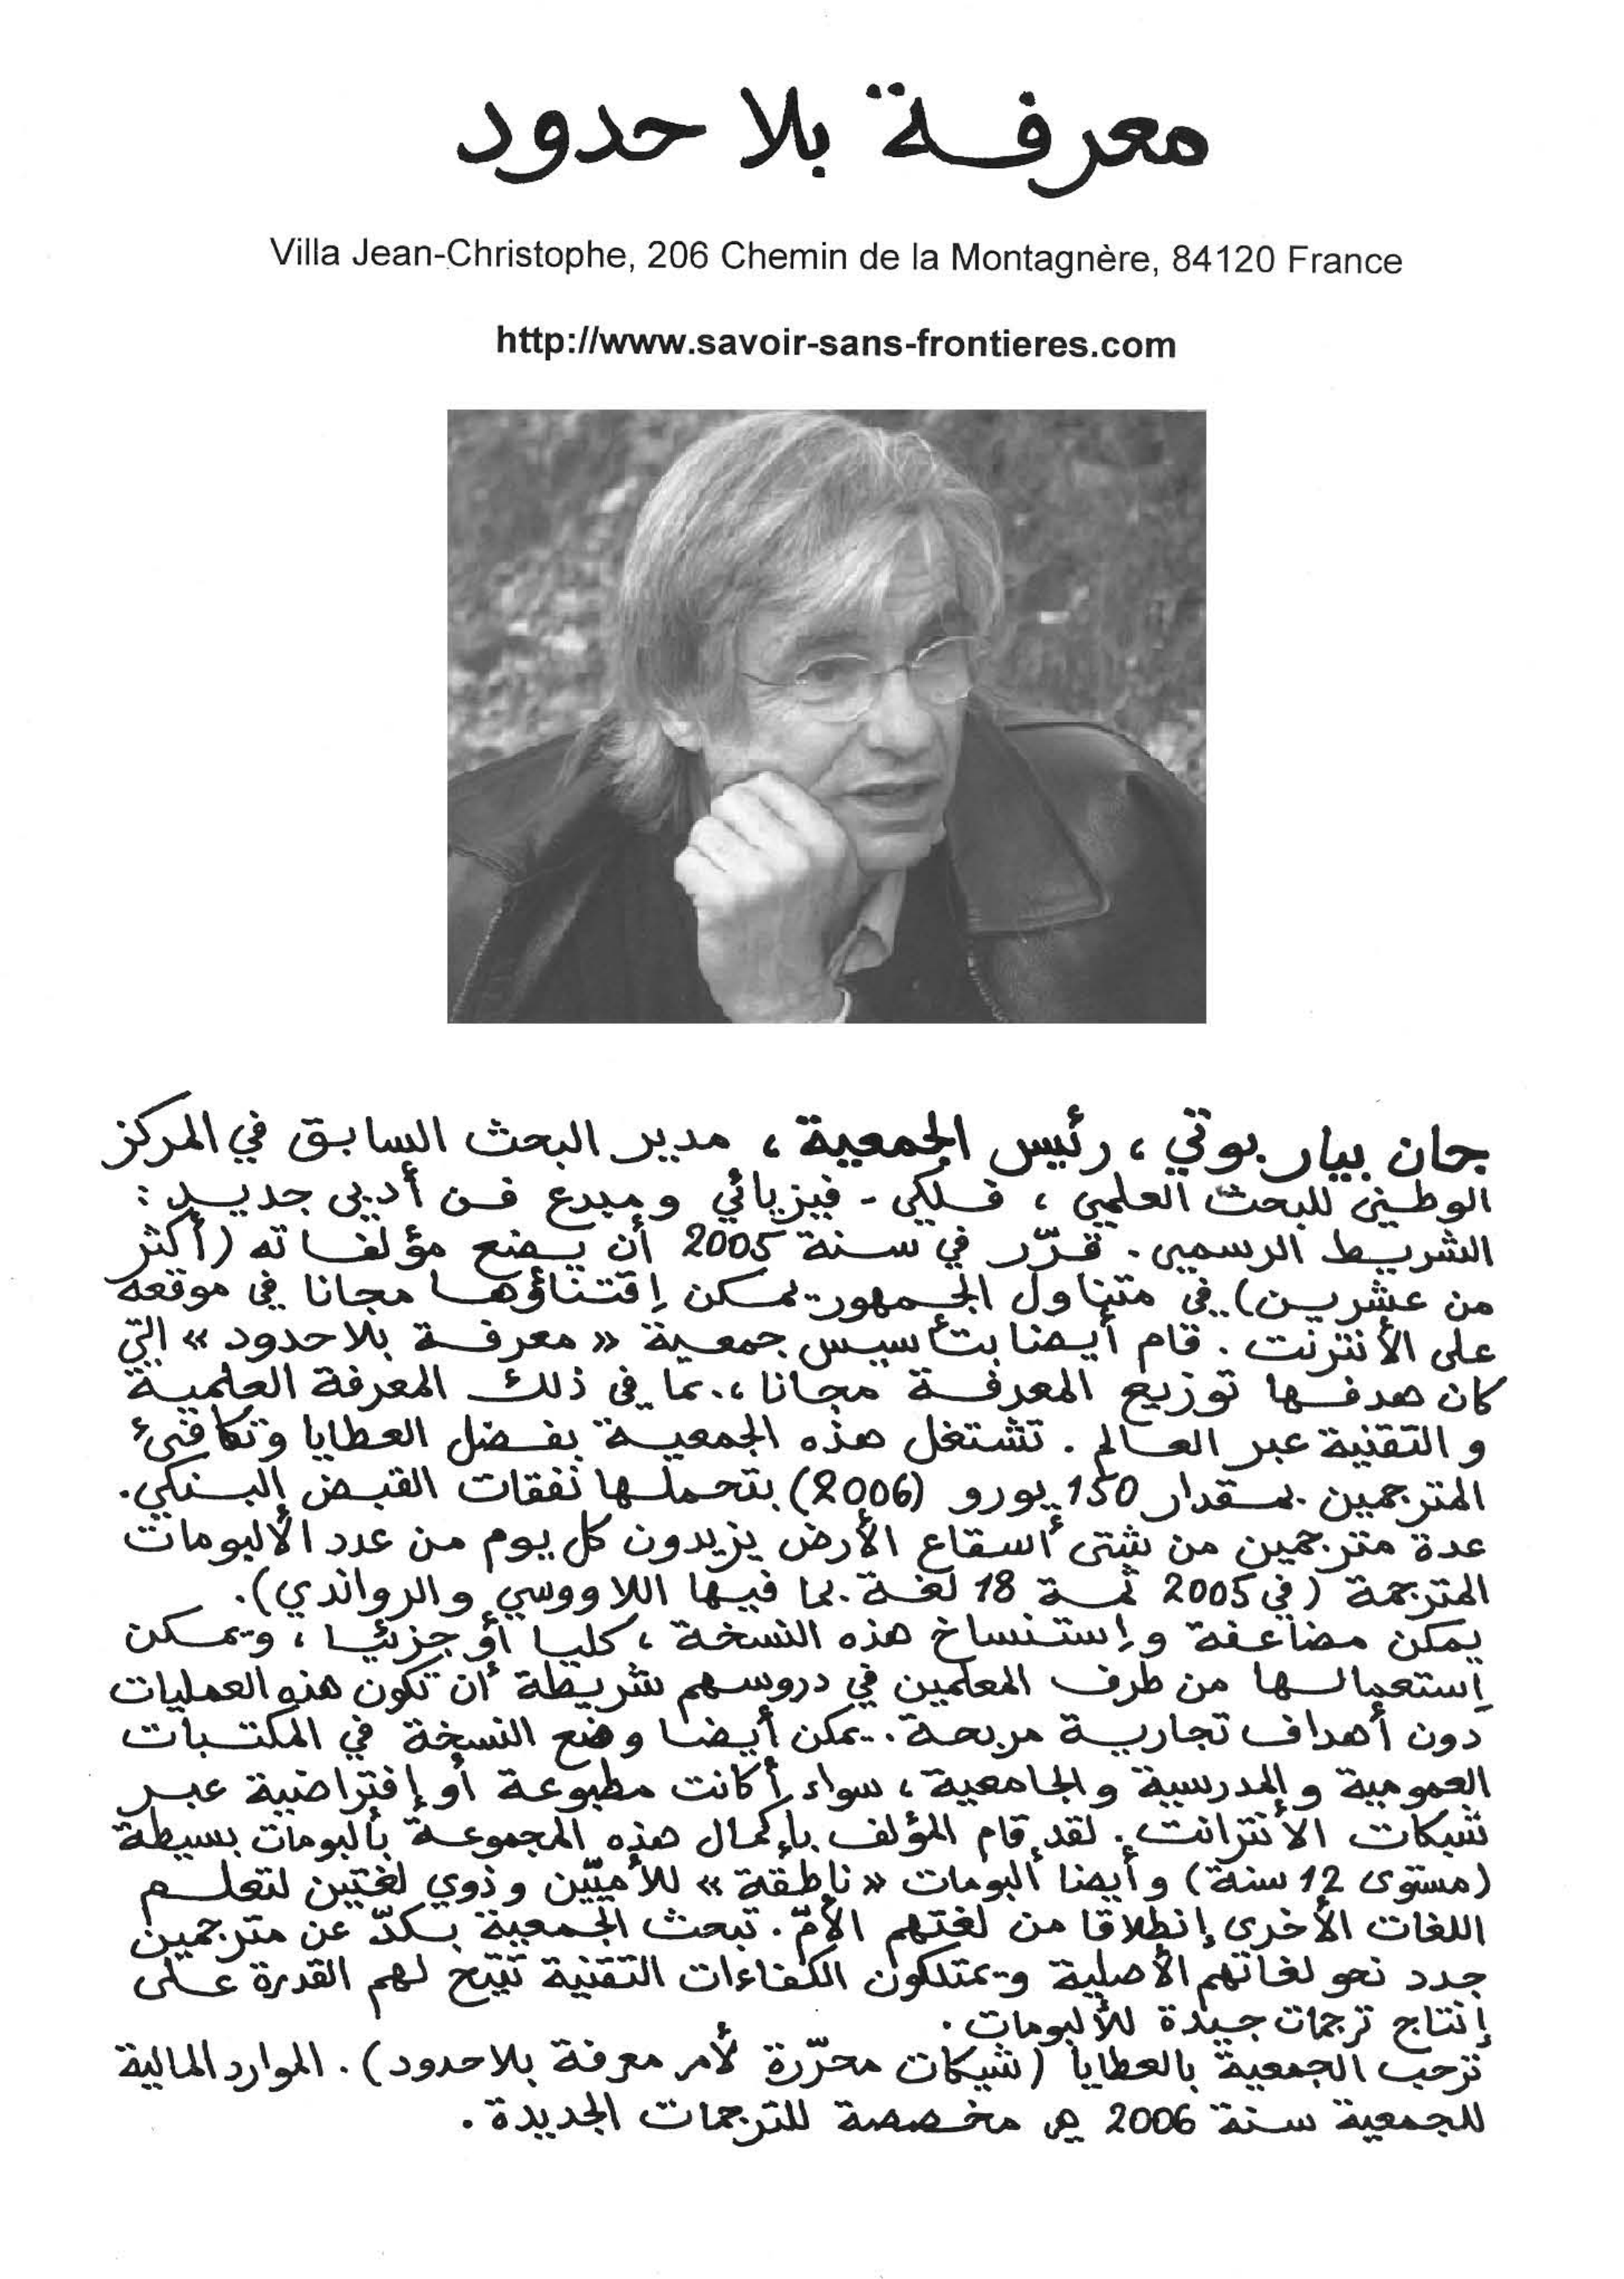 معرفة بلا حدود
Villa Jean-Christophe, 206 Chemin de la Montagnère, 84120 France
http://www.savoir-sans-frontieres.com
جان بيار بوتي ، رئيس الجمعية ، مدير البحث السابق في المركز
الوطني للبحث العلمي ، فلكي - فيزيائي ومبدع فن أدبي جديد :
الشريط الرسمي . قرّر في سنة 2005 أن يضع مؤلفاته (أكثر
من عشرين) في متناول الجمهور يمكن إقتناؤها مجانا في موقعه
على الأنترنت . قام أيضا بتأسيس جمعية « معرفة بلا حدود » التي
كان هدفها توزيع المعرفة مجانا ، بما في ذلك المعرفة العلمية
و التقنية عبر العالم . تشتغل هذه الجمعية بفضل العطايا وتكافئ
المترجمين بمقدار 150 يورو (2006) بتحملها نفقات القبض البنكي .
عدة مترجمين من شتى أسقاع الأرض يزيدون كل يوم من عدد الألبومات
المترجمة (في 2005 ثمة 18 لغة بما فيها اللاووسي والرواندي) .
يمكن مضاعفة وإستنساخ هذه النسخة ، كليا أو جزئيا ، ويمكن
إستعمالها من طرف المعلمين في دروسهم شريطة أن تكون هذه العمليات
دون أهداف تجارية مربحة . يمكن أيضا وضع النسخة في المكتبات
العمومية والمدرسية والجامعية ، سواء أكانت مطبوعة أو إفتراضية عبر
شبكات الأنترانت . لقد قام المؤلف بإكمال هذه المجموعة بألبومات بسيطة
(مستوى 12 سنة) وأيضا ألبومات « ناطقة » للأميّين وذوي لغتين لتعلم
اللغات الأخرى إنطلاقا من لغتهم الأمّ . تبحث الجمعية بكدّ عن مترجمين
جدد نحو لغاتهم الأصلية ويمتلكون الكفاءات التقنية تتيح لهم القدرة على
إنتاج ترجمات جيدة للألبومات .
ترحب الجمعية بالعطايا (شيكات محرّرة لأمر معرفة بلا حدود) . الموارد المالية
للجمعية سنة 2006 هي مخصصة للترجمات الجديدة .